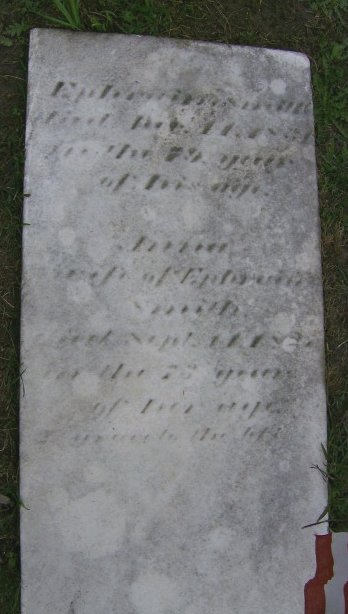 Ephraim Smith
died
in the 79 year
of his age.
Anna
wife of Ephraim
Smith
died Sept. 14 18
in the 73 year
of her age.